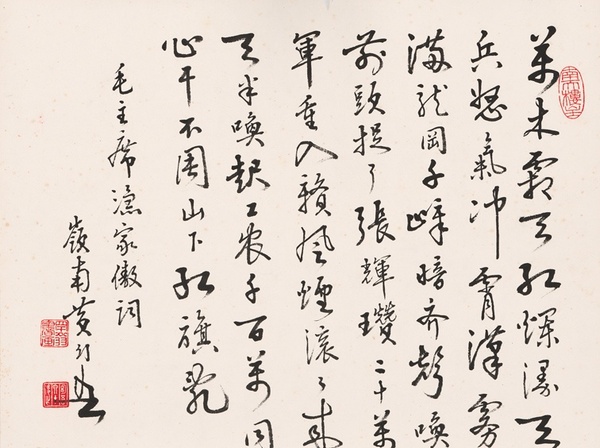 萬木霜天紅爛漫天
兵怒氣沖霄漢霧
滿龍岡千嶂暗齊聲喚
前頭捉了張輝瓚二十萬
軍重入贛風煙滾々來
天半喚起工農千百萬同
心干不周山下紅旗亂
毛主席漁家傲詞
嶺南黃